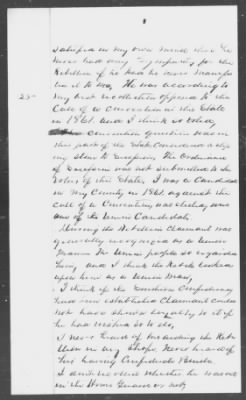 satisfied in my own mind that he
never had any sympathy for the
Rebellion if he had he never manifes
ted it to me, He was according to
25- my best recollection opposed to the
Call of a Convention in the State
in 1861. and I think so voted,
convention question was in
this part of the State considered a step
to secession. The Ordinance
of Secession was not submitted to the
voters of this State, I was a Candidate
in my County in 1861. against the
call of a Convention, was elected, was
one of the Union Candidates.
During the Rebellion Claimant was
generally recognized as a Union
Man. The Union people so regarded
him, and I think the Rebels looked
upon him as a Union Man,
I think if the Southern Confederacy
had been established Claimant could
not have shown loyalty to it if
he had wished to do so,
I never heard of his aiding the Rebel
lion in any shape, Never heard of
his having Confederate Bonds.
I dont recollect whether he was out
in the Home Guard or not,